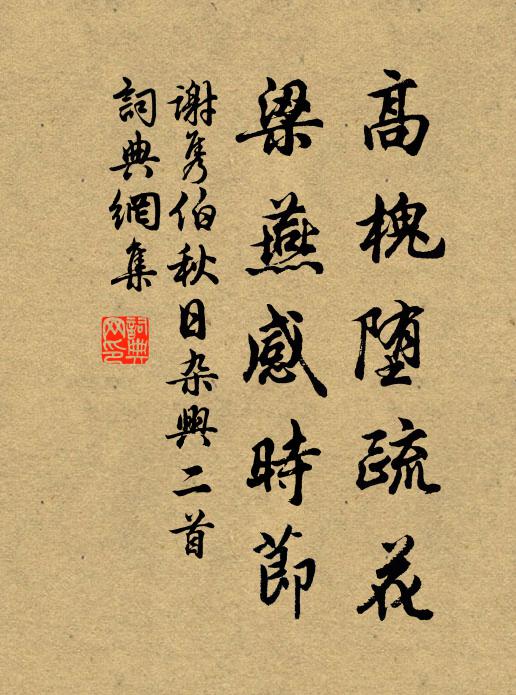 高槐堕疏花
梁燕感時節
謝隽伯秋日杂興二首
詞典網集
詞典网印